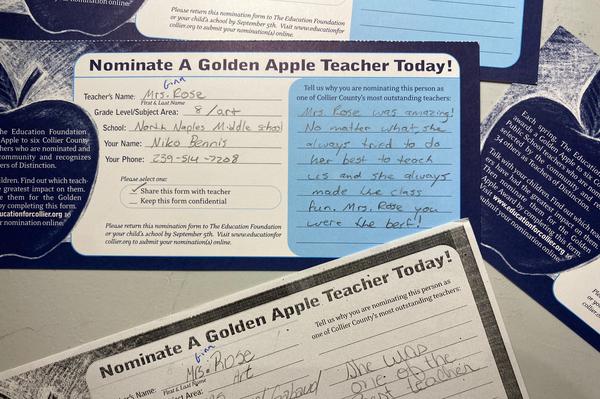 Please return this nomination form to The Education Foundation
or your child's school by September 5th. Visit www.educationfor
collier.org to submit your nomination online.
Nominate A Golden Apple Teacher Today!
Gina
Teacher's Name: Mrs. Rose
First & Last Name
Grade Level/Subject Area: 8 / art
School: North Naples Middle school
Your Name: Niko Bennis
Your Phone: 239-514-7208
Please select one:
Share this form with teacher
Keep this form confidential
Please return this nomination form to The Education Foundation
or your child's school by September 5th. Visit www.educationfor
collier.org to submit your nomination online.
Tell us why you are nominating this person as
one of Collier County's most outstanding teachers:
Mrs. Rose was amazing!
No matter what she
always tried to do
her best to teach
us and she always
made the class
fun. Mrs. Rose you
were the best!
he Education Foundation
Apple to six Collier County
hers who are nominated and
community and recognizes
ers of Distinction.
ildren. Find out which teach-
e greatest impact on them.
e them for the Golden
y completing this form.
ucationforcollier.org to
r nomination online.
Each spring, The Education
awards a Golden Apple to six
public teachers who are nom
by the community and
34 others as Teachers of Distinct
Talk with your children. Find out which teac
Then, nominate them for the
Award by completing this form.
Visit www.educationforcollier.org
submit your nomination online.
Nominate A Golden Apple Teacher Today!
Gina
Name: Mrs. Rose
First & Last Name
Area: Art
Tell us why you are nominating this person as
one of Collier County's most outstanding teachers:
She was
one of the
teacher